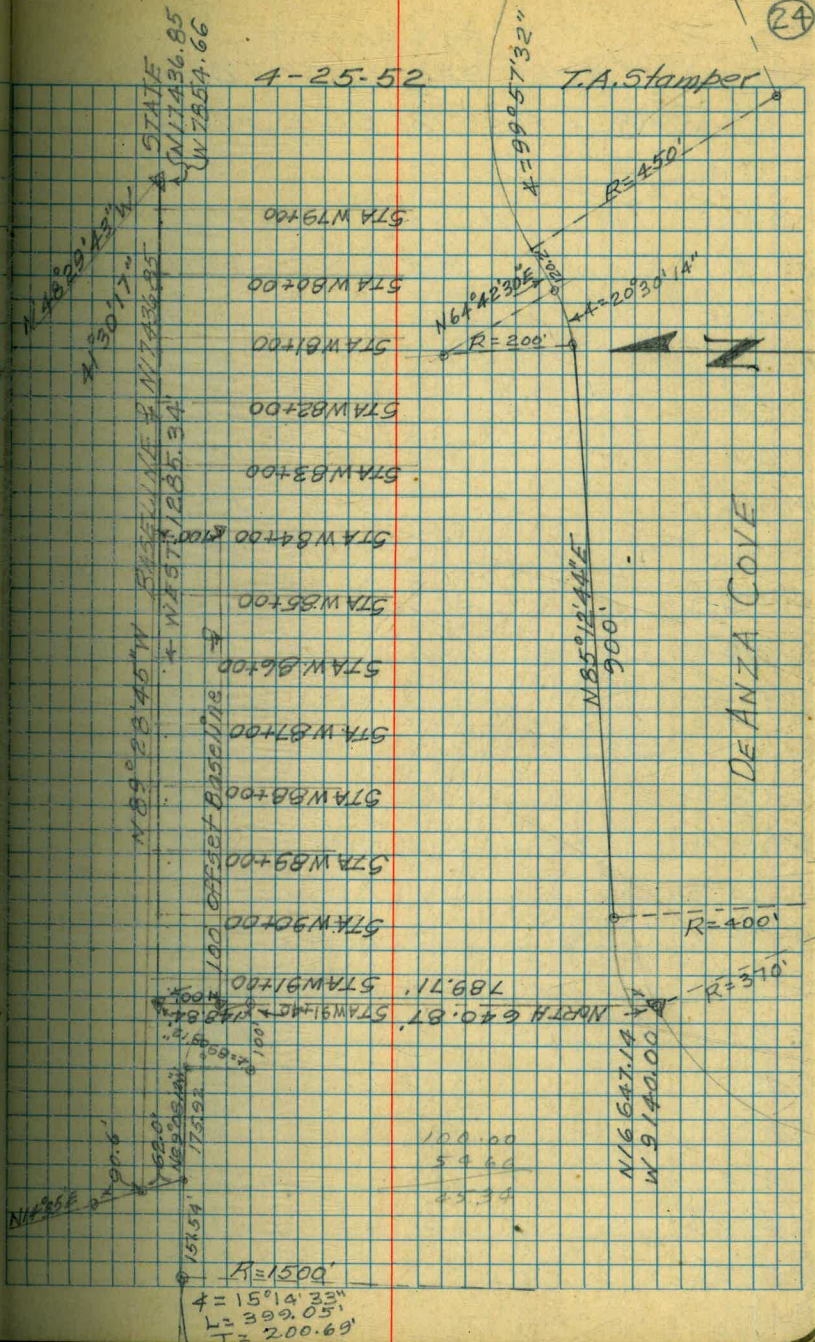 24
4-25-52
T.A. Stamper
STATE
N17436.85
W7854.66
N48°29'43"W
41°30'17"
BASELINE N17436.85
← WEST 1285.34'
N89°28'45"W
100' Offset Baseline
STA W79+00
STA W80+00
STA W81+00
STA W82+00
STA W83+00
STA W84+00
100'
STA W85+00
STA W86+00
STA W87+00
STA W88+00
STA W89+00
STA W90+00
STA W91+00
STA W91+40
789.71'
NORTH 640.87'
148.84
100'
∆=99°57'32"
R=450'
120.2'
N64°42'30"E
∆=20°30'14"
R=200'
N
N85°12'44"E
900'
DE ANZA COVE
R=400'
R=370'
N16647.14
W9140.00
175.92
62.0'
90.6'
N14°25'E
151.54'
100.00
54.66
45.34
R=1500'
∆=15°14'33"
L=399.05'
T=200.69'